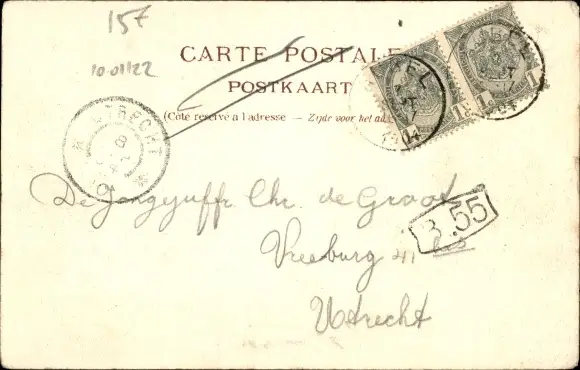 15F
10-01122
CARTE POSTALE
POSTKAART
(Côté réservé a l'adresse — Zijde voor het
UTRECHT
8
1904
1 c 1 c
De Jongejuffr. Chr. de Groot
B.55
Vreeburg 41 bis
Utrecht